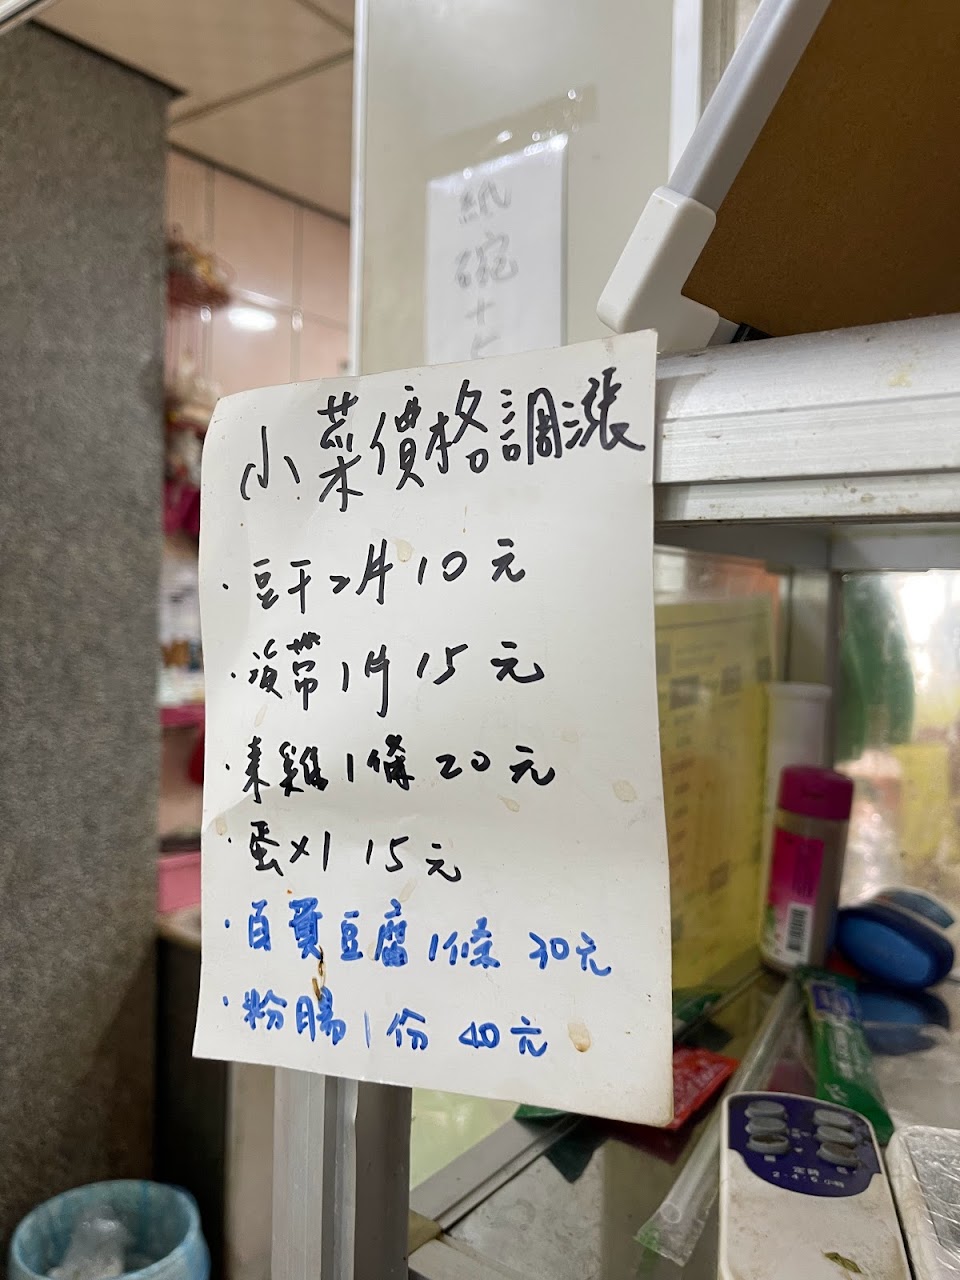 紙碗十七
小菜價格調漲
·豆干2片10元
·海帶1片15元
·素雞1條20元
·蛋×1 15元
·百頁豆腐1條30元
·粉腸1份40元
定時
2·4·6小時